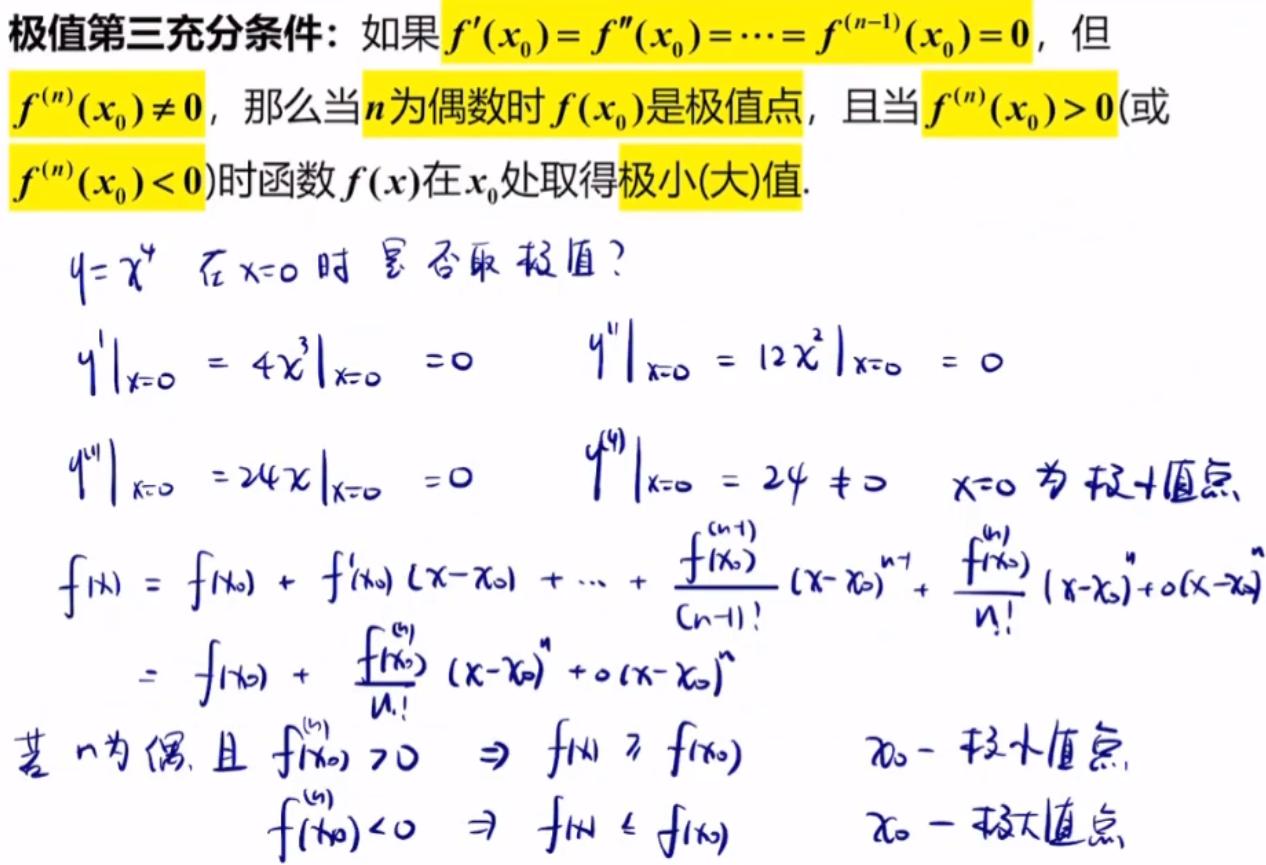 极值第三充分条件：如果 f′(x₀) = f″(x₀) = ⋯ = f⁽ⁿ⁻¹⁾(x₀) = 0，但
f⁽ⁿ⁾(x₀) ≠ 0，那么当 n 为偶数时 f(x₀) 是极值点，且当 f⁽ⁿ⁾(x₀) > 0 (或
f⁽ⁿ⁾(x₀) < 0)时函数 f(x) 在 x₀ 处取得极小(大)值.
y = x⁴ 在 x=0 时 是否取极值？
y′|ₓ₌₀ = 4x³|ₓ₌₀ = 0 y″|ₓ₌₀ = 12x²|ₓ₌₀ = 0
y‴|ₓ₌₀ = 24x|ₓ₌₀ = 0 y⁽⁴⁾|ₓ₌₀ = 24 ≠ 0 x=0 为极小值点
f(x) = f(x₀) + f′(x₀)(x−x₀) + ⋯ + f⁽ⁿ⁻¹⁾(x₀)/(n−1)! (x−x₀)ⁿ⁻¹ + f⁽ⁿ⁾(x₀)/n! (x−x₀)ⁿ + o(x−x₀)ⁿ
= f(x₀) + f⁽ⁿ⁾(x₀)/n! (x−x₀)ⁿ + o(x−x₀)ⁿ
若 n为偶, 且 f⁽ⁿ⁾(x₀) > 0 ⇒ f(x) ≥ f(x₀) x₀ − 极小值点.
f⁽ⁿ⁾(x₀) < 0 ⇒ f(x) ≤ f(x₀) x₀ − 极大值点